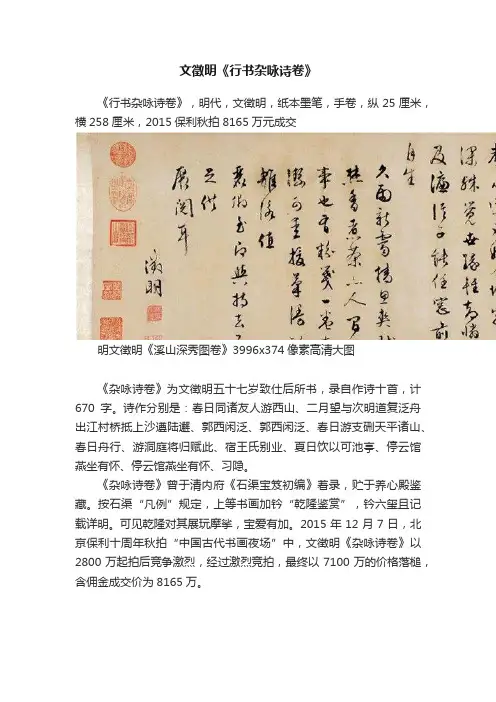 文徵明《行书杂咏诗卷》
《行书杂咏诗卷》，明代，文徵明，纸本墨笔，手卷，纵25厘米，
横258厘米，2015保利秋拍8165万元成交
深殊覺世緣輕
自生
久雨新霽
徵明
明文徵明《溪山深秀图卷》3996x374像素高清大图
《杂咏诗卷》为文徵明五十七岁致仕后所书，录自作诗十首，计
670字。诗作分别是：春日同诸友人游西山、二月望与次明道复泛舟
出江村桥抵上沙遵陆邅、郭西闲泛、郭西闲泛、春日游支硎天平诸山、
春日舟行、游洞庭将归赋此、宿王氏别业、夏日饮以可池亭、停云馆
燕坐有怀、停云馆燕坐有怀、习隐。
《杂咏诗卷》曾于清内府《石渠宝笈初编》着录，贮于养心殿鉴
藏。按石渠“凡例”规定，上等书画加钤“乾隆鉴赏”，钤六玺且记
载详明。可见乾隆对其展玩摩挲，宝爱有加。2015年12月7日，北
京保利十周年秋拍“中国古代书画夜场”中，文徵明《杂咏诗卷》以
2800万起拍后竞争激烈，经过激烈竞拍，最终以7100万的价格落槌，
含佣金成交价为8165万。